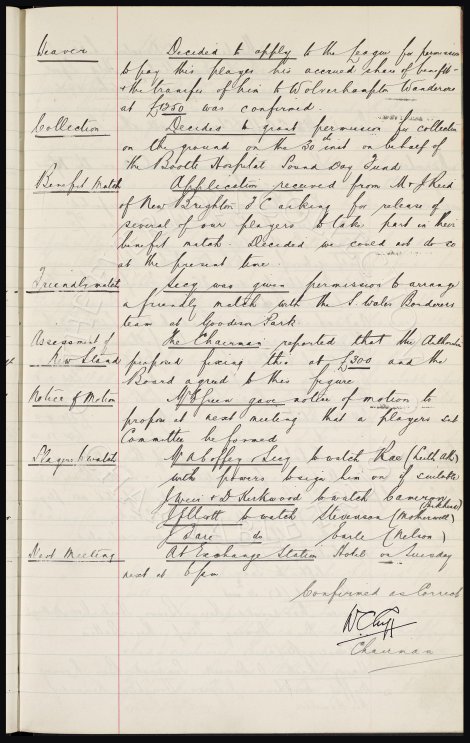 Weaver Decided to apply to the League for permission
to pay this player his accrued share of benefit -
+ the transfer of him to Wolverhampton Wanderers
at £1250 was confirmed.
Collection Decided to grant permission for collection
on the ground on the 30th inst on behalf of
the Bootle Hospital Pound Day Fund
Benefit Match Application received from Mr J Reid
of New Brighton F C asking for release of
several of our players to take part in their
benefit match. Decided we could not do so
at the present time.
Friendly match Secy was given permission to arrange
a friendly match with the S. Wales Borderers
team at Goodison Park.
Assessment of The Chairman reported that the Authorities
New Stand proposed fixing this at £300 and the
Board agreed to this figure
Notice of Motion Mr Green gave notice of motion to
propose at next meeting that a players sub
Committee be formed
Players to watch Mr A Coffey + Secy to watch Rae (Leith Ath)
with powers to sign him on if suitable
J Weir + D Kirkwood to watch Cameron
J Elliott to watch Stevenson (Motherwell)
J Gare do Earle (Nelson)
Next Meeting At Exchange Station Hotel on Tuesday
next at 6 pm
Confirmed as Correct
W. C. Cuff
Chairman